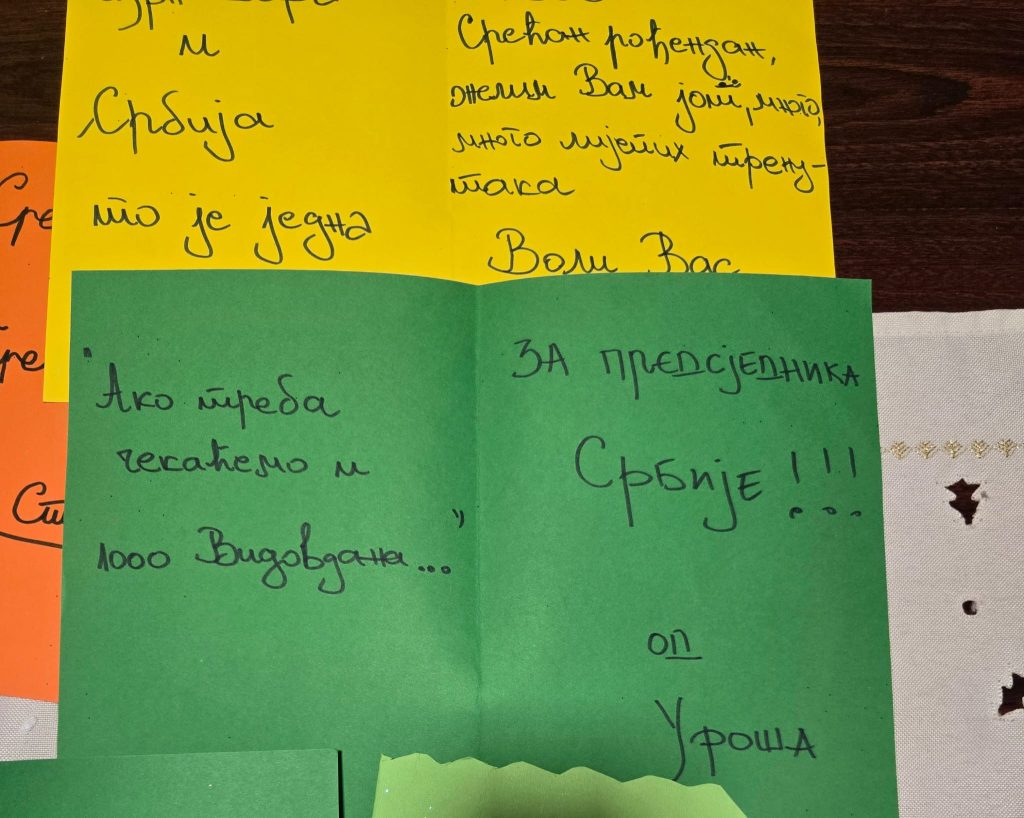 и
Србија
то је једна
Срећан рођендан,
желим Вам још, много,
много лијепих трену-
така
Воли Вас
"Ако треба
чекаћемо и
1000 Видовдана..."
ЗА ПРЕДСЈЕДНИКА
СРБИЈЕ !!!
ОД
УРОША